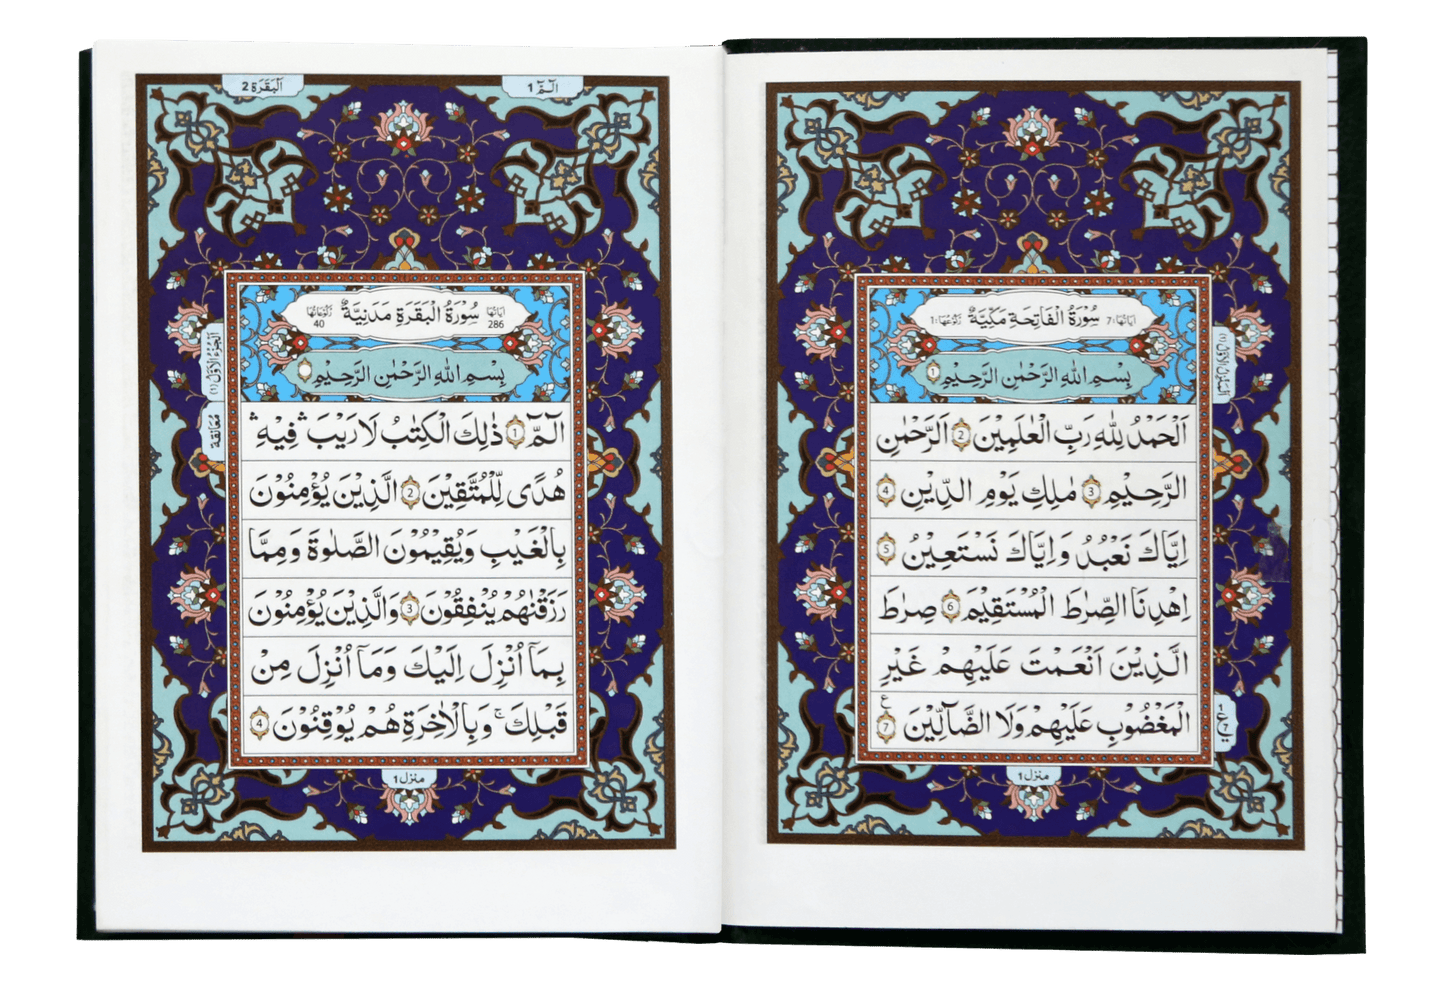 سُوْرَةُ الْفَاتِحَةِ مَكِّيَّةٌ
اٰيَاتُهَا: 7
رُكُوْعُهَا: 1
بِسْمِ اللهِ الرَّحْمٰنِ الرَّحِيْمِ 1
اَلْحَمْدُ لِلّٰهِ رَبِّ الْعٰلَمِيْنَ 2 الرَّحْمٰنِ
الرَّحِيْمِ 3 مٰلِكِ يَوْمِ الدِّيْنِ 4
اِيَّاكَ نَعْبُدُ وَاِيَّاكَ نَسْتَعِيْنُ 5
اِهْدِنَا الصِّرَاطَ الْمُسْتَقِيْمَ 6 صِرَاطَ
الَّذِيْنَ اَنْعَمْتَ عَلَيْهِمْ غَيْرِ
الْمَغْضُوْبِ عَلَيْهِمْ وَلَا الضَّآلِّيْنَ 7
ع
منزل 1
اَلْمَنْزِلُ الْاَوَّلُ (1)
1
ع
7
الٓمّٓ 1
اَلْبَقَرَة 2
سُوْرَةُ الْبَقَرَةِ مَدَنِيَّةٌ
اٰيَاتُهَا 286
رُكُوْعَاتُهَا 40
بِسْمِ اللهِ الرَّحْمٰنِ الرَّحِيْمِ
الٓمّٓ 1 ذٰلِكَ الْكِتٰبُ لَا رَيْبَ ۛ فِيْهِ ۛ
هُدًى لِّلْمُتَّقِيْنَ 2 الَّذِيْنَ يُؤْمِنُوْنَ
بِالْغَيْبِ وَيُقِيْمُوْنَ الصَّلٰوةَ وَمِمَّا
رَزَقْنٰهُمْ يُنْفِقُوْنَ 3 وَالَّذِيْنَ يُؤْمِنُوْنَ
بِمَآ اُنْزِلَ اِلَيْكَ وَمَآ اُنْزِلَ مِنْ
قَبْلِكَ ۚ وَبِالْاٰخِرَةِ هُمْ يُوْقِنُوْنَ 4
منزل 1
اَلْجُزْءُ الْاَوَّلُ (1)
مُعَانقة